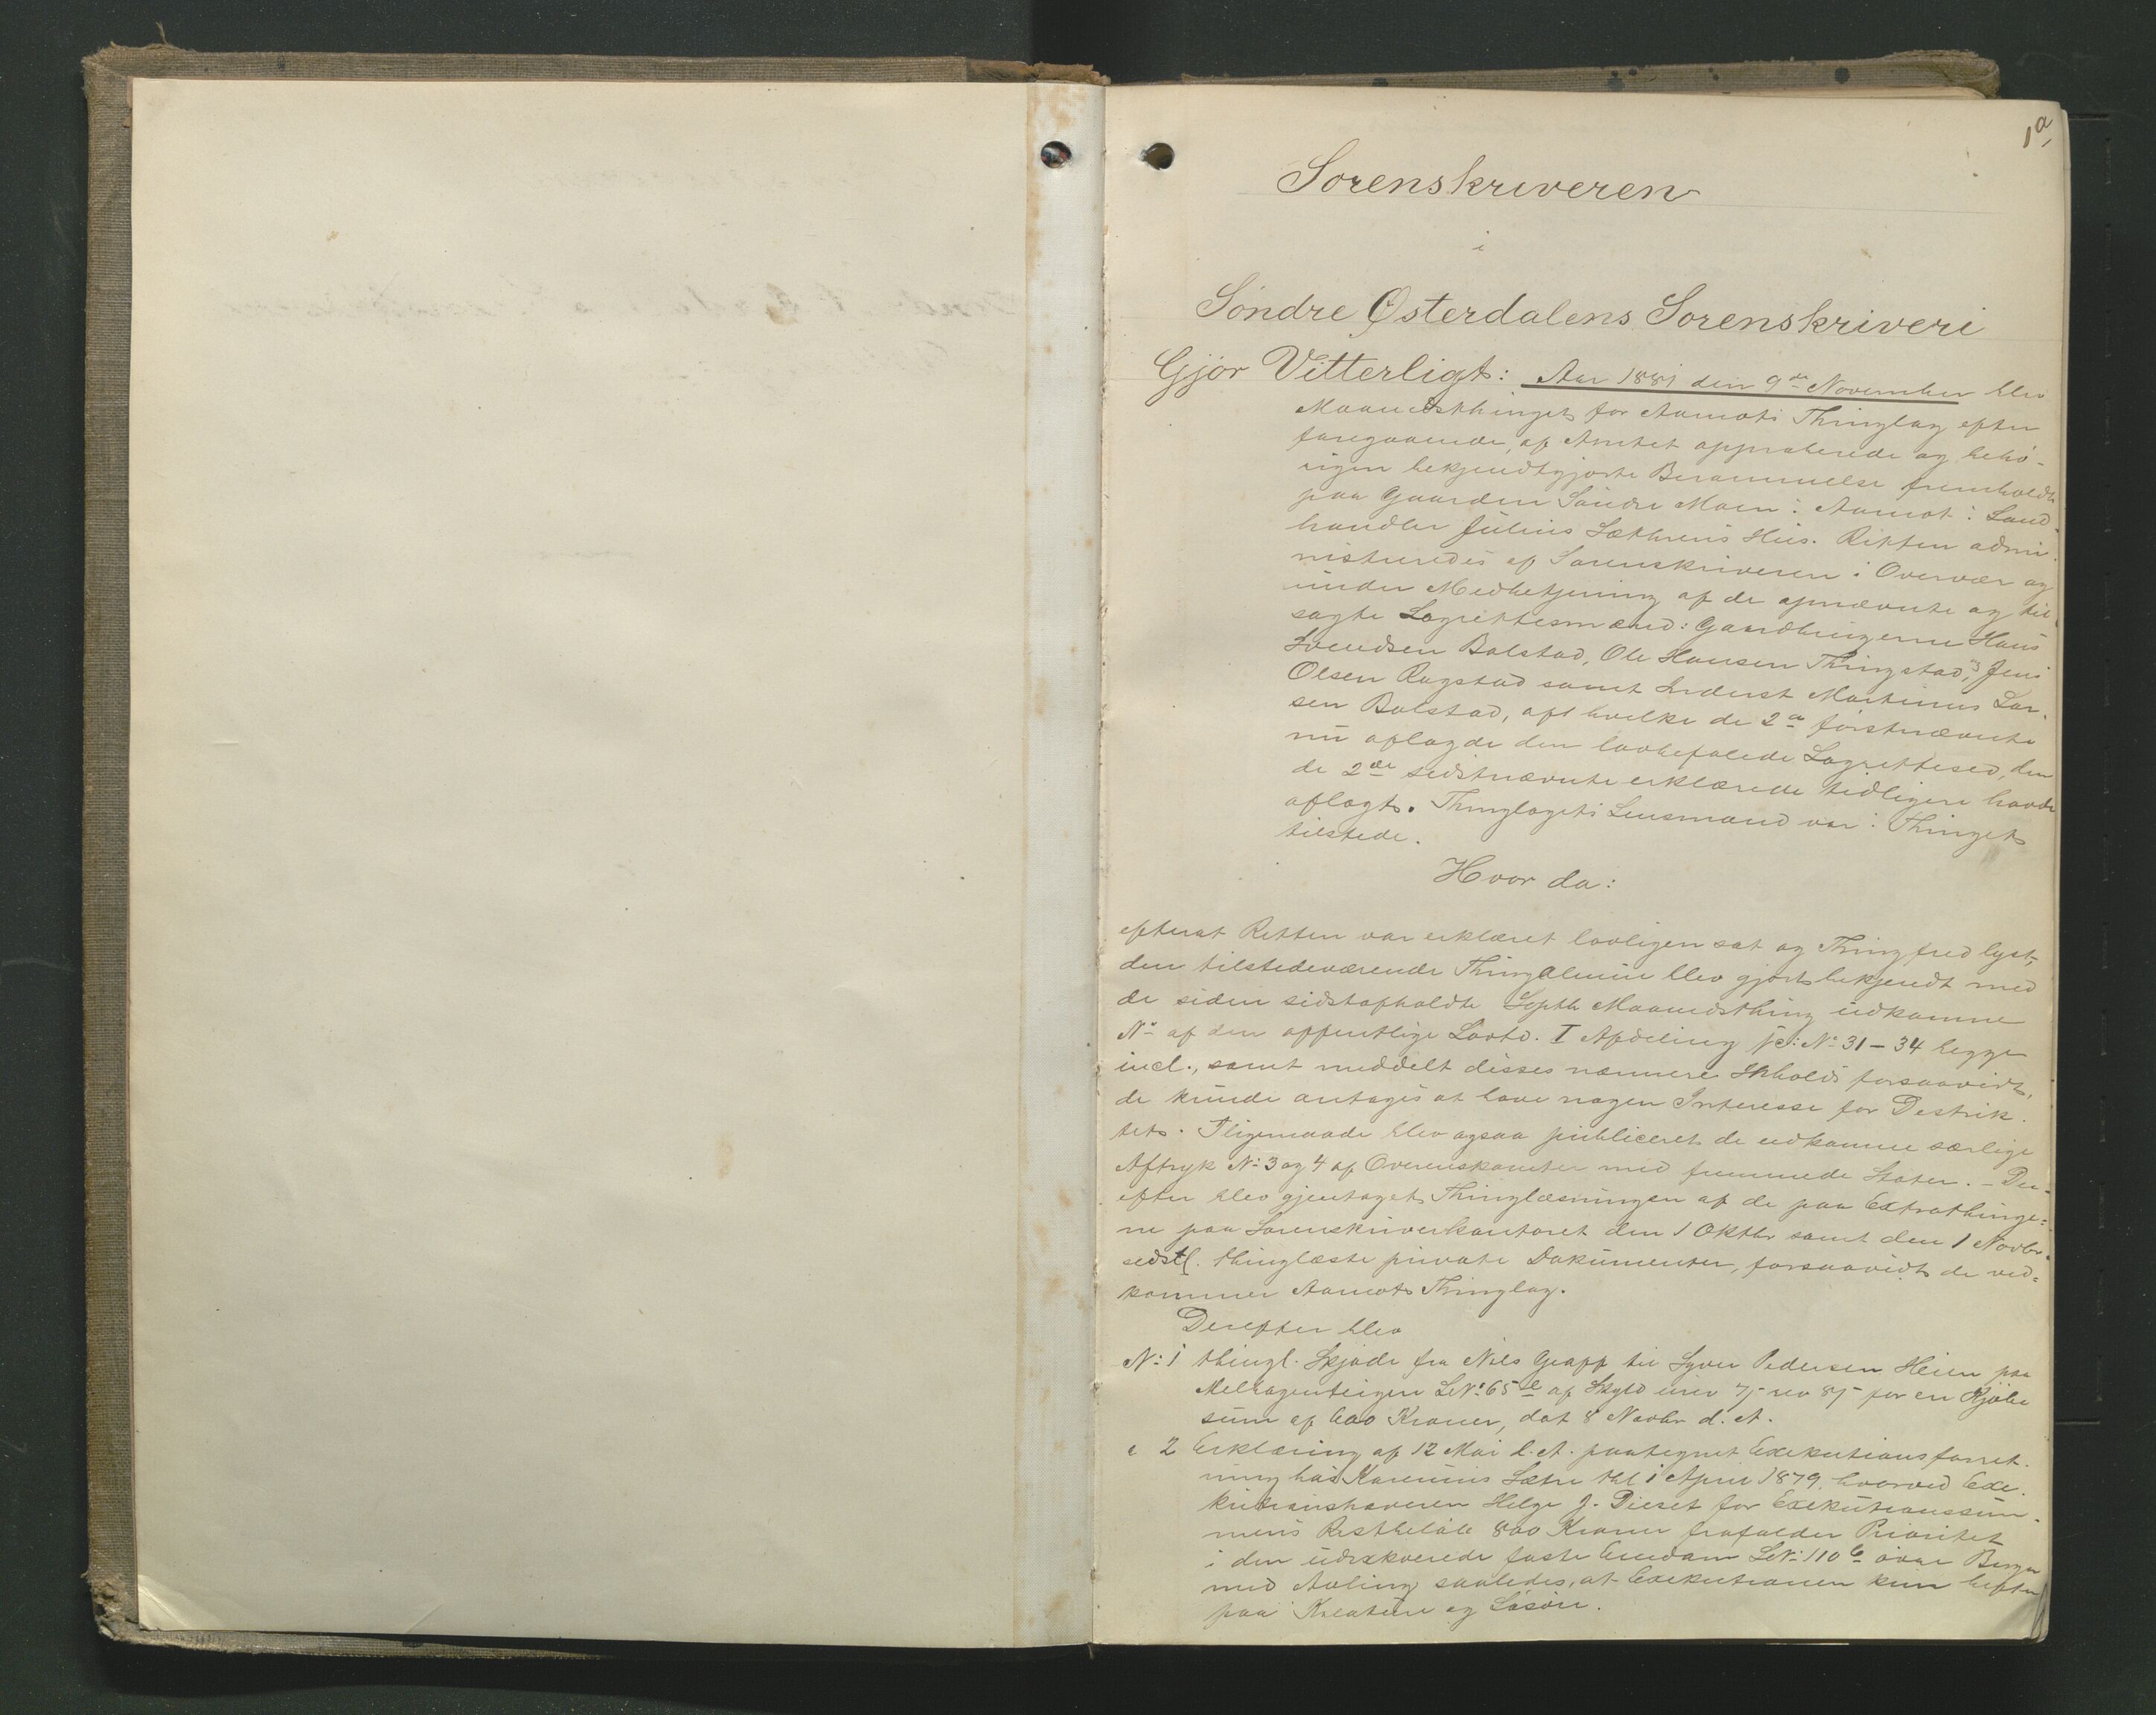 1a,
Sorenskriveren
i
Søndre Østerdalens Sorenskriveri
Gjør Vitterligt: Aar 1881 den 9de November blev
Maanedsthinget for Aamots Thinglag efter
foregaaende, af Amtet approberede og behø-
rigen bekjendtgjorte Berammelse fremholdt
paa Gaarden Søndre Moen i Aamot i Land-
handler Julius Sæthrens Hus. Retten admi-
nistreredes af Sorenskriveren i Overvær og
under Medbetjening af de opnævnte og til-
sagte Lagrettesmænd: Gaardbrugerne Hans
Svendsen Bolstad, Ole Hansen Thingstad, Jens
Olsen Rogstad samt Inderst Martinus Lar-
sen Bolstad, af hvilke de 2de førstnævnte
nu aflagde den lovbefalede Lagrettesed, den
de 2de sidstnævnte erklærede tidligere havde
aflagt. Thinglagets Lensmand var i Thinget
tilstede.
Hvor da:
efterat Retten var erklæret lovligen sat og Thingfred lyst,
den tilstedeværende Thingalmue blev gjort bekjendt med
de siden sidstafholdte Septbr Maanedsthing udkomne
No af den offentlige Lovtd. I Afdeling No 31-34 begge
incl., samt meddelt disses nærmere Inhold forsaavidt
de kunde antages at have nogen Interesse for Distrik-
tet. Iligemaade blev ogsaa publiceret de udkomne særlige
Aftryk No 3 og 4 af Overenskomster med fremmede Stater. - Der-
efter blev gjentaget Thinglæsningen af de paa Extrathinge-
ne paa Sorenskriverkontoret den 1 Oktbr samt den 1 Novbr
sidstl. thinglæste private Dokumenter, forsaavidt de ved-
kommer Aamots Thinglag.
Derefter blev
No 1 thingl. Skjøde fra Nils Graff til Syver Pedersen Heien paa
LNo 65 af Skyld for en Kjøbe
sum af 600 Kroner, dat 8 Novbr d. A.
" 2 Erklæring af 12 Mai d. A. paategnet Exekutionsforret-
ning hos Karenus Sætre thl 1 April 1879, hvorved Exe-
kutionshaveren Helge J. Dieset for Exekutionssum-
mens Restbeløb 800 Kroner frafalder Prioritet
i den udexkverede faste Eiendom LNo 110 øvre Berger
med Avling saaledes, at Exekutionen kun hefter
paa Kreature og Løsøre.